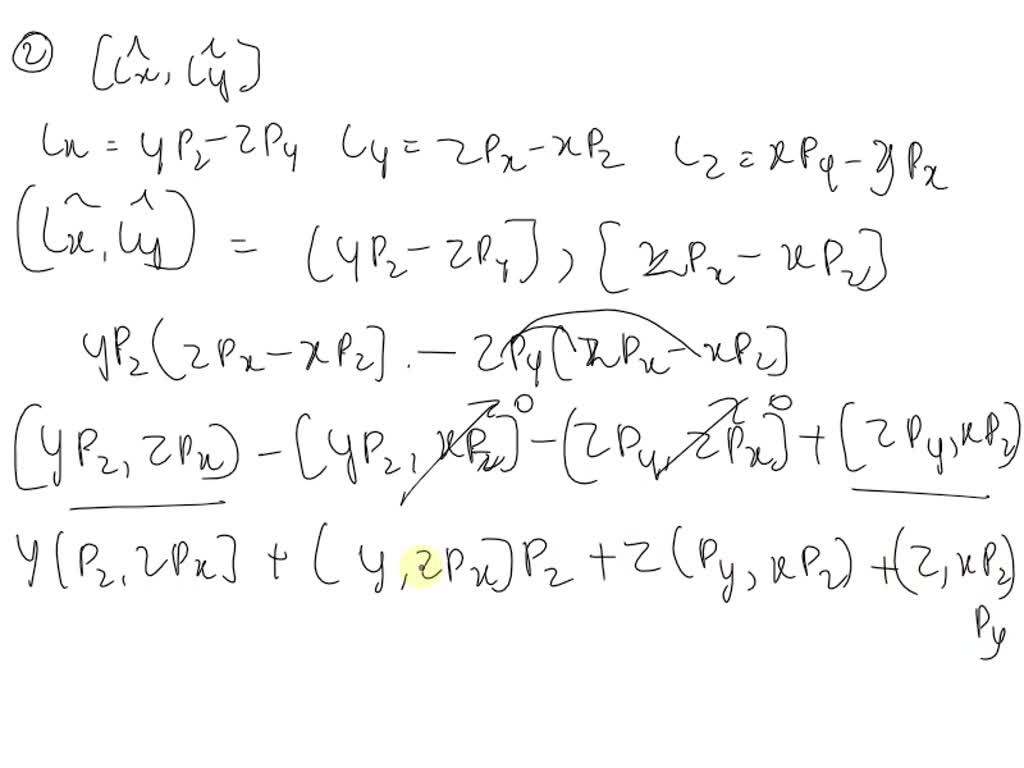 ② [L̂x, L̂y]
Lx = yPz - zPy Ly = zPx - xPz Lz = xPy - yPx
[L̂x, L̂y] = [yPz - zPy], [zPx - xPz]
yPz[zPx - xPz] - zPy[zPx - xPz]
[yPz, zPx] - [yPz, xPz]⁰ - [zPy, zPx]⁰ + [zPy, xPz]
y[Pz, zPx] + [y, zPx]Pz + z[Py, xPz] + [z, xPz]
Py